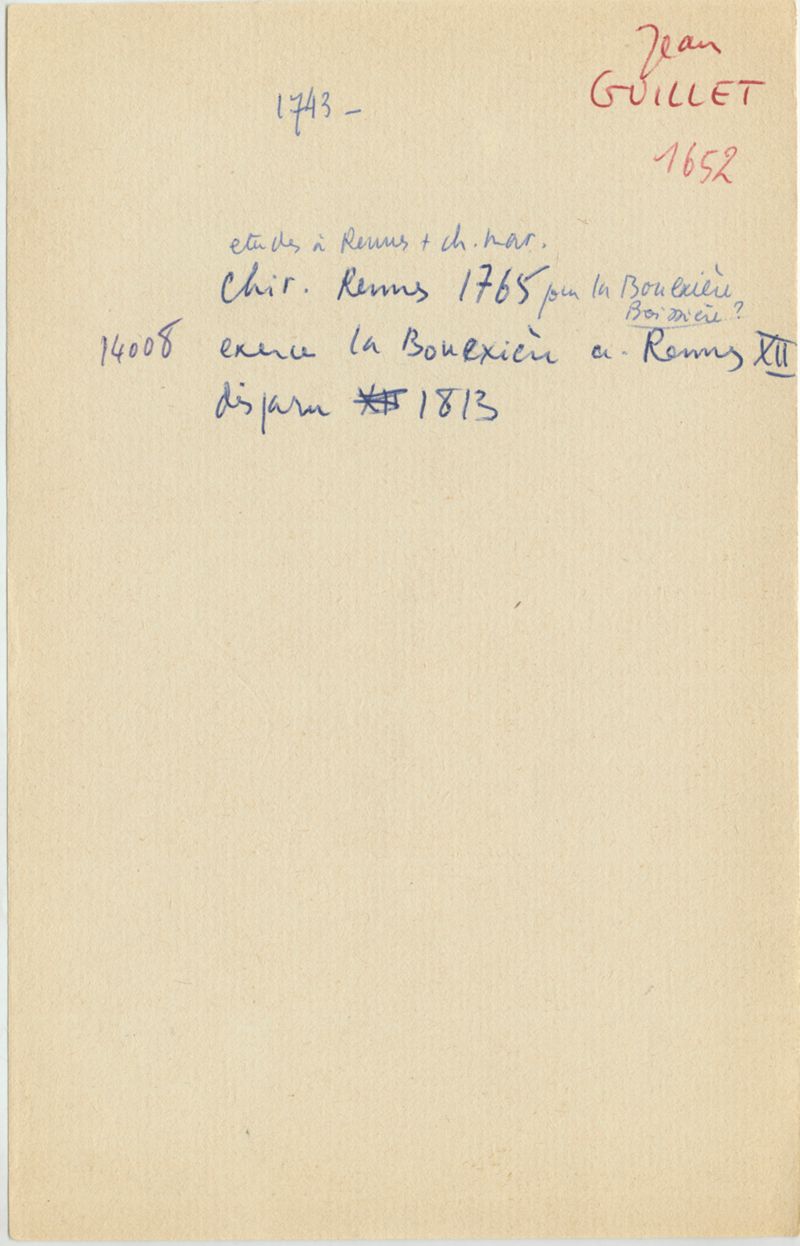 Jean
GUILLET
1743 -
1652
etudes à Rennes + ch. mar.
Chir. Rennes 1765 pour la Bouexière
Boissière ?
14008 exerce la Bouexière a. Rennes XII
disparu 1813